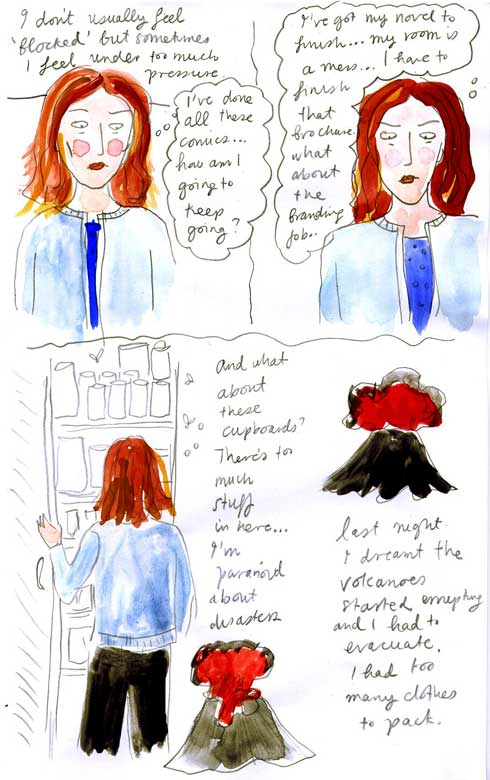 I don't usually feel
'blocked' but sometimes
I feel under too much
pressure
I've done
all these
comics...
how am I
going to
keep
going?
I've got my novel to
finish... my room is
a mess... I have to
finish
that
brochure
what
about
the
branding
job..
And what
about
these
cupboards?
There's too
much
stuff
in here...
I'm
paranoid
about
disasters
last night
I dreamt the
volcanoes
started errupting
and I had to
evacuate.
I had too
many clothes
to pack.